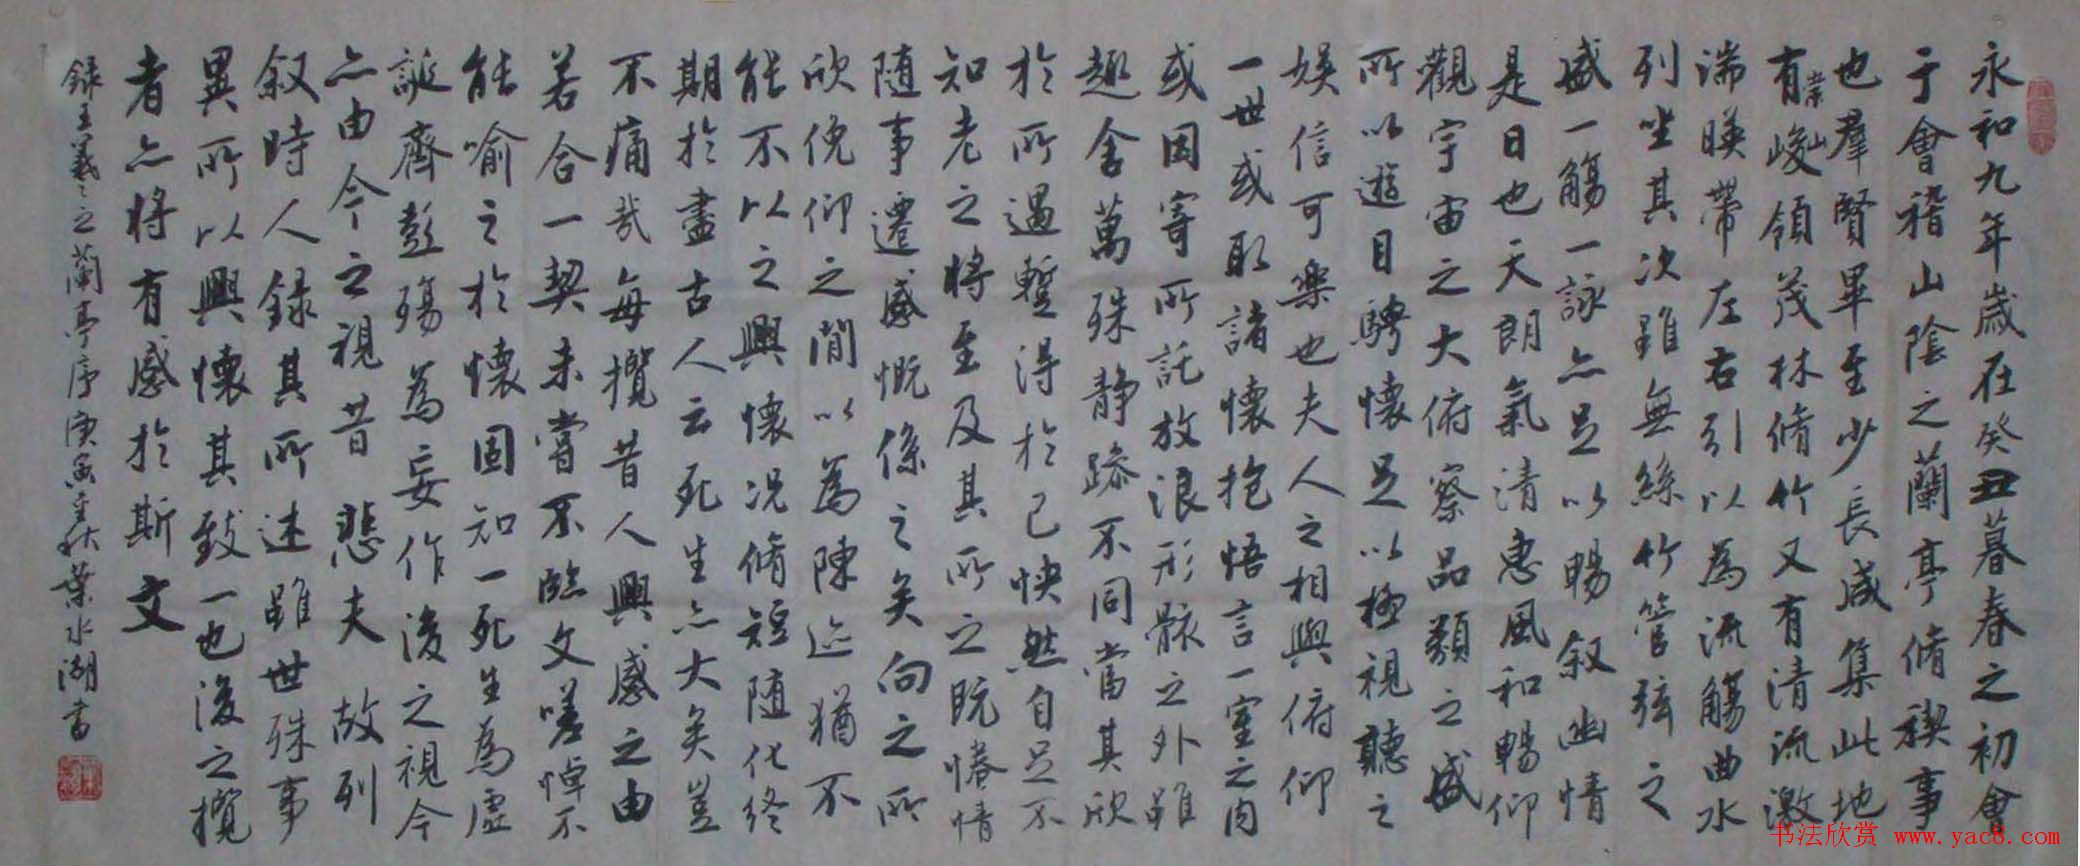 永和九年歲在癸丑暮春之初會
于會稽山陰之蘭亭脩稧事
也羣賢畢至少長咸集此地
有崇山峻領茂林脩竹又有清流激
湍暎帶左右引以為流觴曲水
列坐其次雖無絲竹管弦之
盛一觴一詠亦足以暢叙幽情
是日也天朗氣清惠風和暢仰
觀宇宙之大俯察品類之盛
所以遊目騁懷足以極視聽之
娛信可樂也夫人之相與俯仰
一世或取諸懷抱悟言一室之內
或因寄所託放浪形骸之外雖
趣舍萬殊静躁不同當其欣
於所遇蹔得於己怏然自足不
知老之將至及其所之既惓情
随事遷感慨係之矣向之所
欣俛仰之閒以為陳迹猶不
能不以之興懷況脩短随化終
期於盡古人云死生亦大矣豈
不痛哉每攬昔人興感之由
若合一契未嘗不臨文嗟悼不
能喻之於懷固知一死生為虛
誕齊彭殤為妄作後之視今
亦由今之視昔 悲夫 故列
叙時人録其所述雖世殊事
異所以興懷其致一也後之攬
者亦將有感於斯文
録王羲之之蘭亭序庚寅重秋葉水湖書
书法欣赏 www.yac8.com